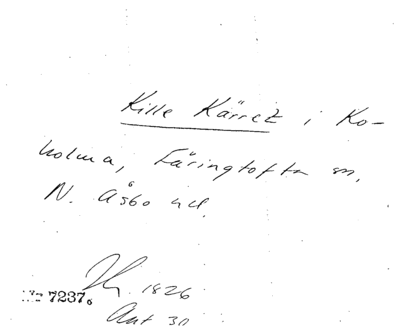 Kille Kärret i Ko-
holma, Färingtofta sn,
N. Åsbo hd.
1826
7237.
Ant 30